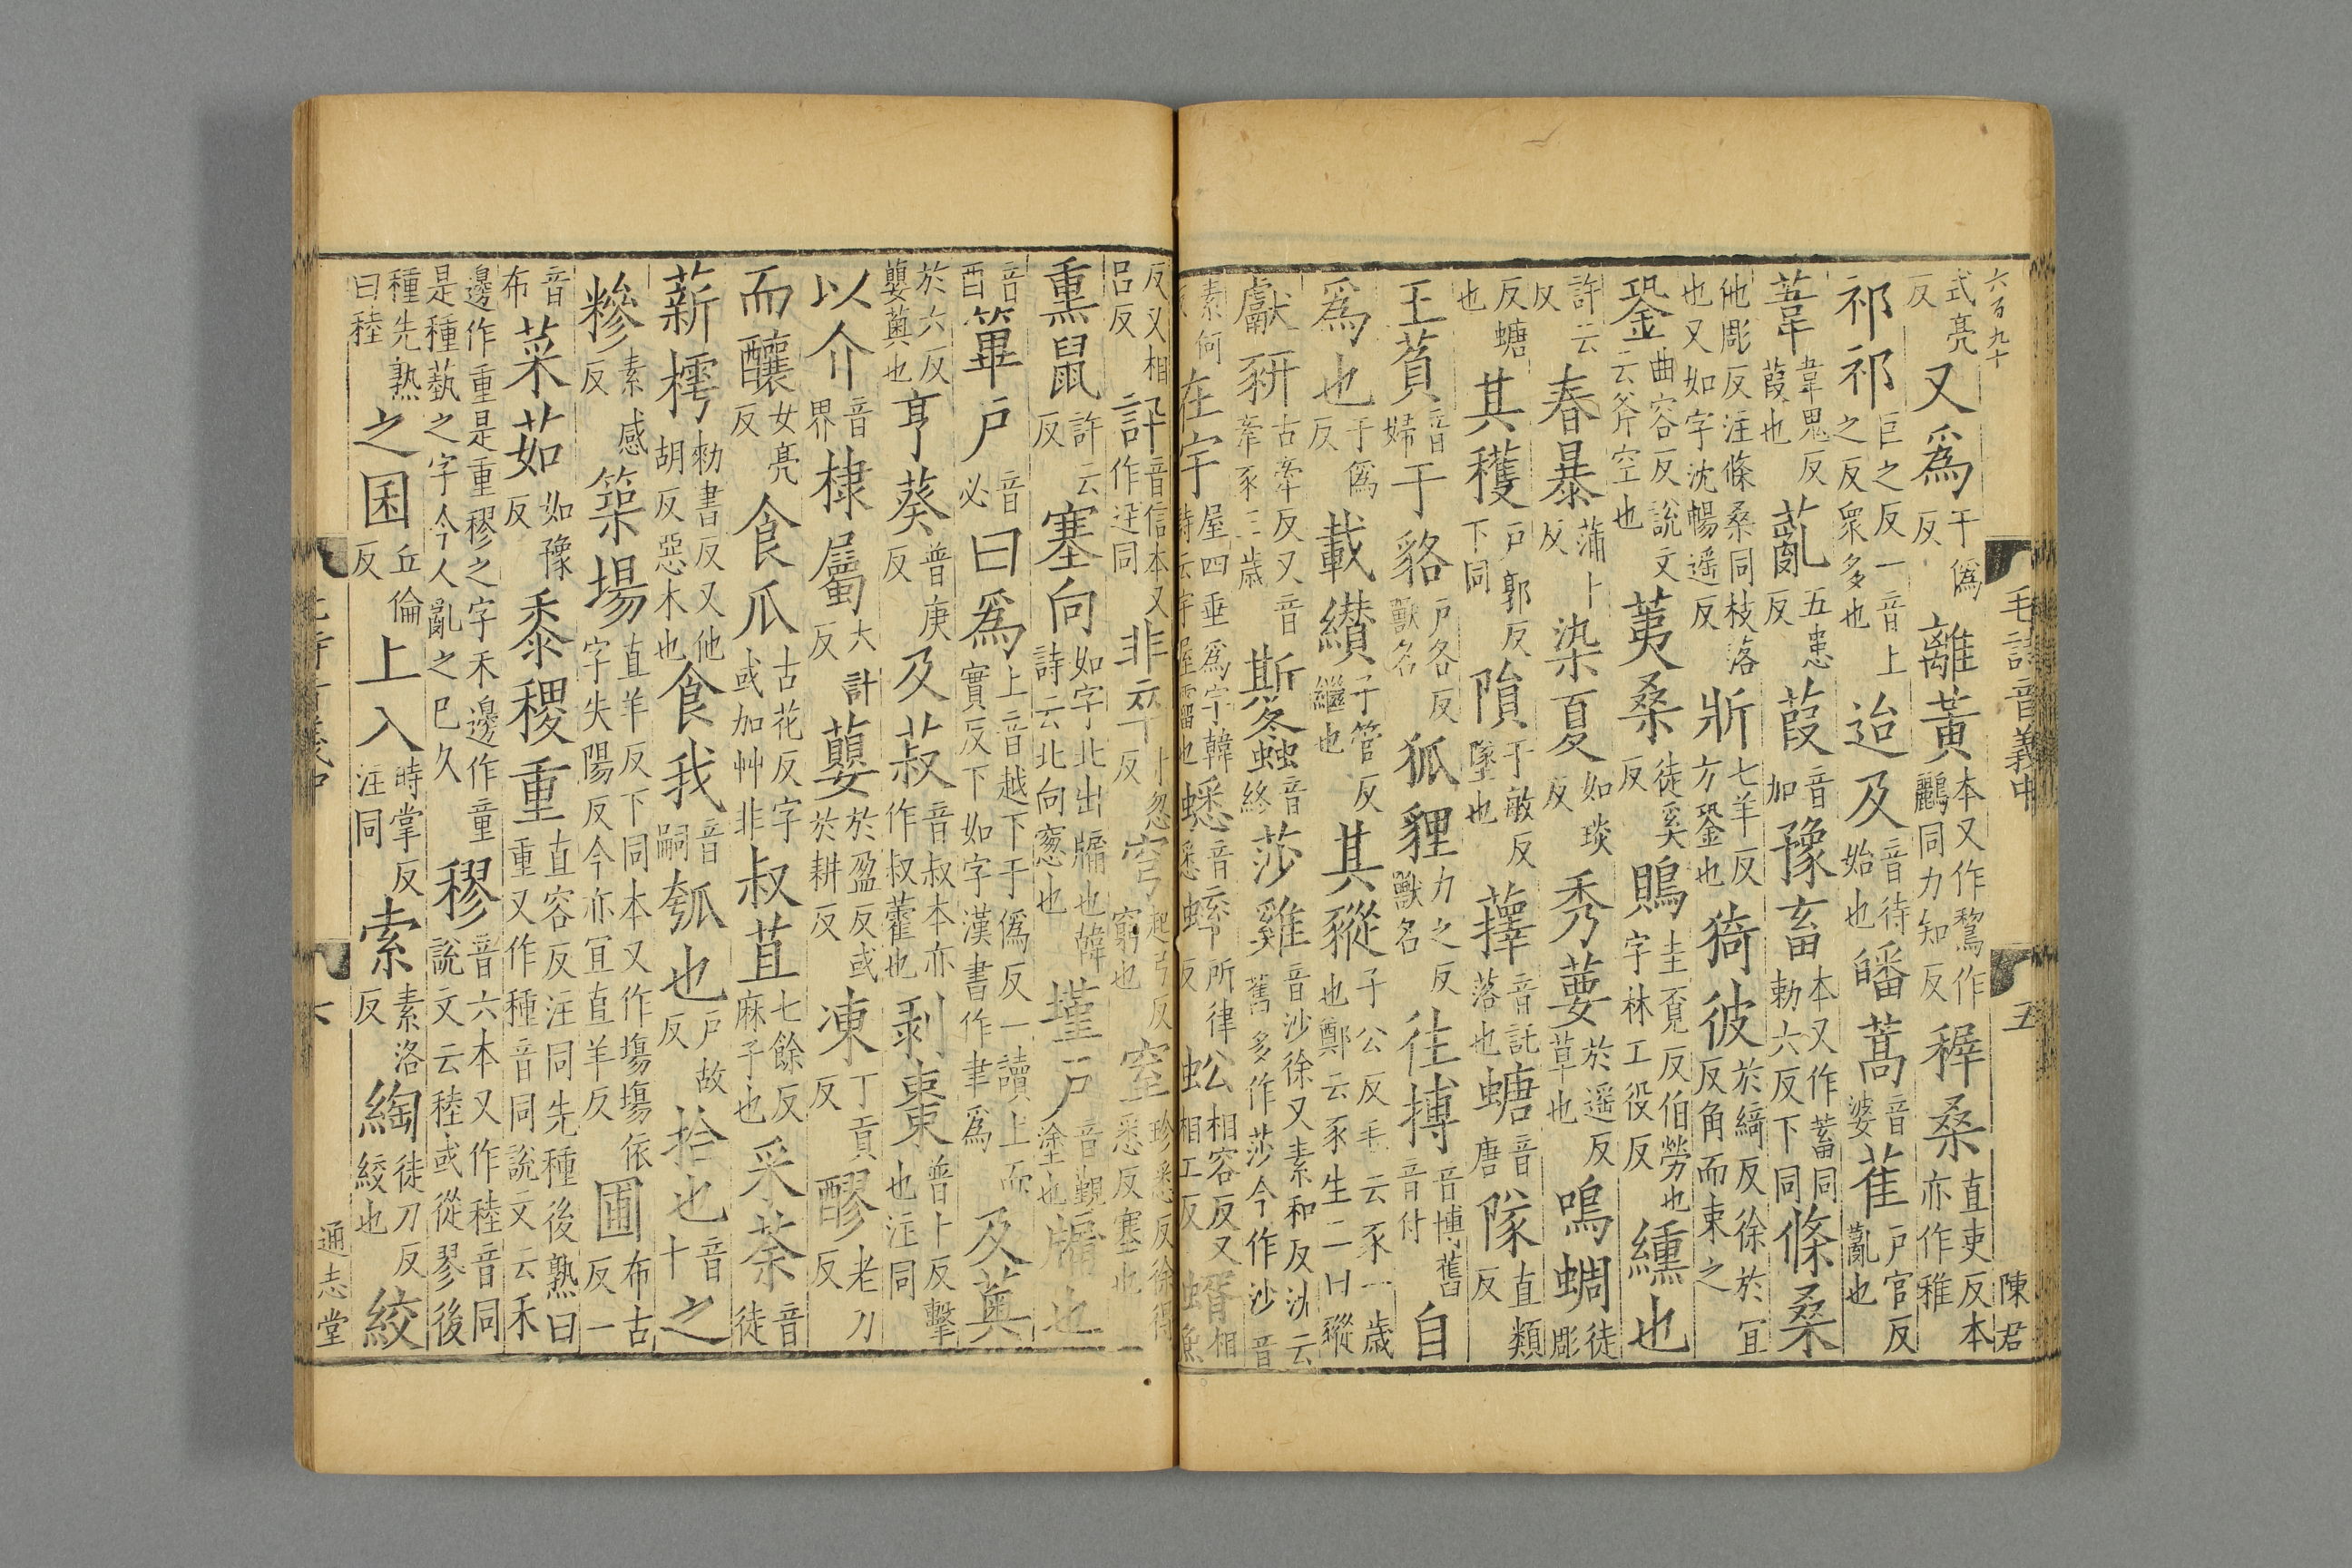 六百九十
式亮反又爲于僞反離黃本又作鸝作鸝同力知反穉桑直吏反本亦作稚
祁祁巨之反一音上之反衆多也迨及音待始也皤蒿音婆萑戶官反薍也
葦韋鬼反葭也薍五患反葭音加豫畜本又作蓄同勑六反下同條桑
他彫反注條桑同枝落也又如字沈暢遥反斨七羊反方銎也猗彼於綺反徐於宜反角而束之
銎曲容反說文云斧空也荑桑徒奚反鵙圭覓反伯勞也字林工役反纁也
許云反春暴蒲卜反染夏如琰反秀葽於遥反草也鳴蜩徒彫
反螗也其穫戶郭反下同隕于敏反墜也蘀音託落也螗音唐隊直類反
王萯音婦于貉戶各反獸名狐貍力之反獸名往搏音博舊音付自
爲也于僞反載纘子管反繼也其豵子公反毛云豕一歲也鄭云豕生三曰豵
獻豜古牽反又音牽豕三歲斯螽音終莎雞音沙徐又素和反沈云舊多作莎今作沙音
素何反在宇屋四垂爲宇韓詩云宇屋霤也蟋音悉蟀所律反蚣相容反又相工反蝑相魚
反又相呂反訊音信本又作迅同非卒寸忽反穹起弓反窮也窒珍悉反徐得悉反塞也
熏鼠許云反塞向如字北出牖也韓詩云北向窻也墐戶音覲塗也牖也
音酉篳戶音必曰爲上音越下于僞反一讀上而實反下如字漢書作聿爲及薁
於六反蘡薁也亨葵普庚反及菽音叔本亦作叔藿也剥棗普卜反擊也注同
以介音界棣屬大計反蘡於盈反或於耕反凍丁貢反醪老刀反
而釀女亮反食瓜古花反字或加艸非叔苴七餘反麻子也采荼音徒
薪樗勑書反又他胡反惡木也食我音嗣瓠也戶故反拾也音十之
糝素感反築場直羊反下同本又作塲塲依字失陽反今亦宜直羊反圃布古反一
音布菜茹如豫反黍稷重直容反注同先種後熟曰重又作種音同說文云禾
邊作重是重穋之字禾邊作童是種蓺之字今人亂之已久穋音六本又作稑音同說文云稑或從翏後
種先熟曰稑之囷丘倫反上入時掌反注同索素洛反綯徒刀反絞也絞
毛詩音義中
五
陳君
六
通志堂